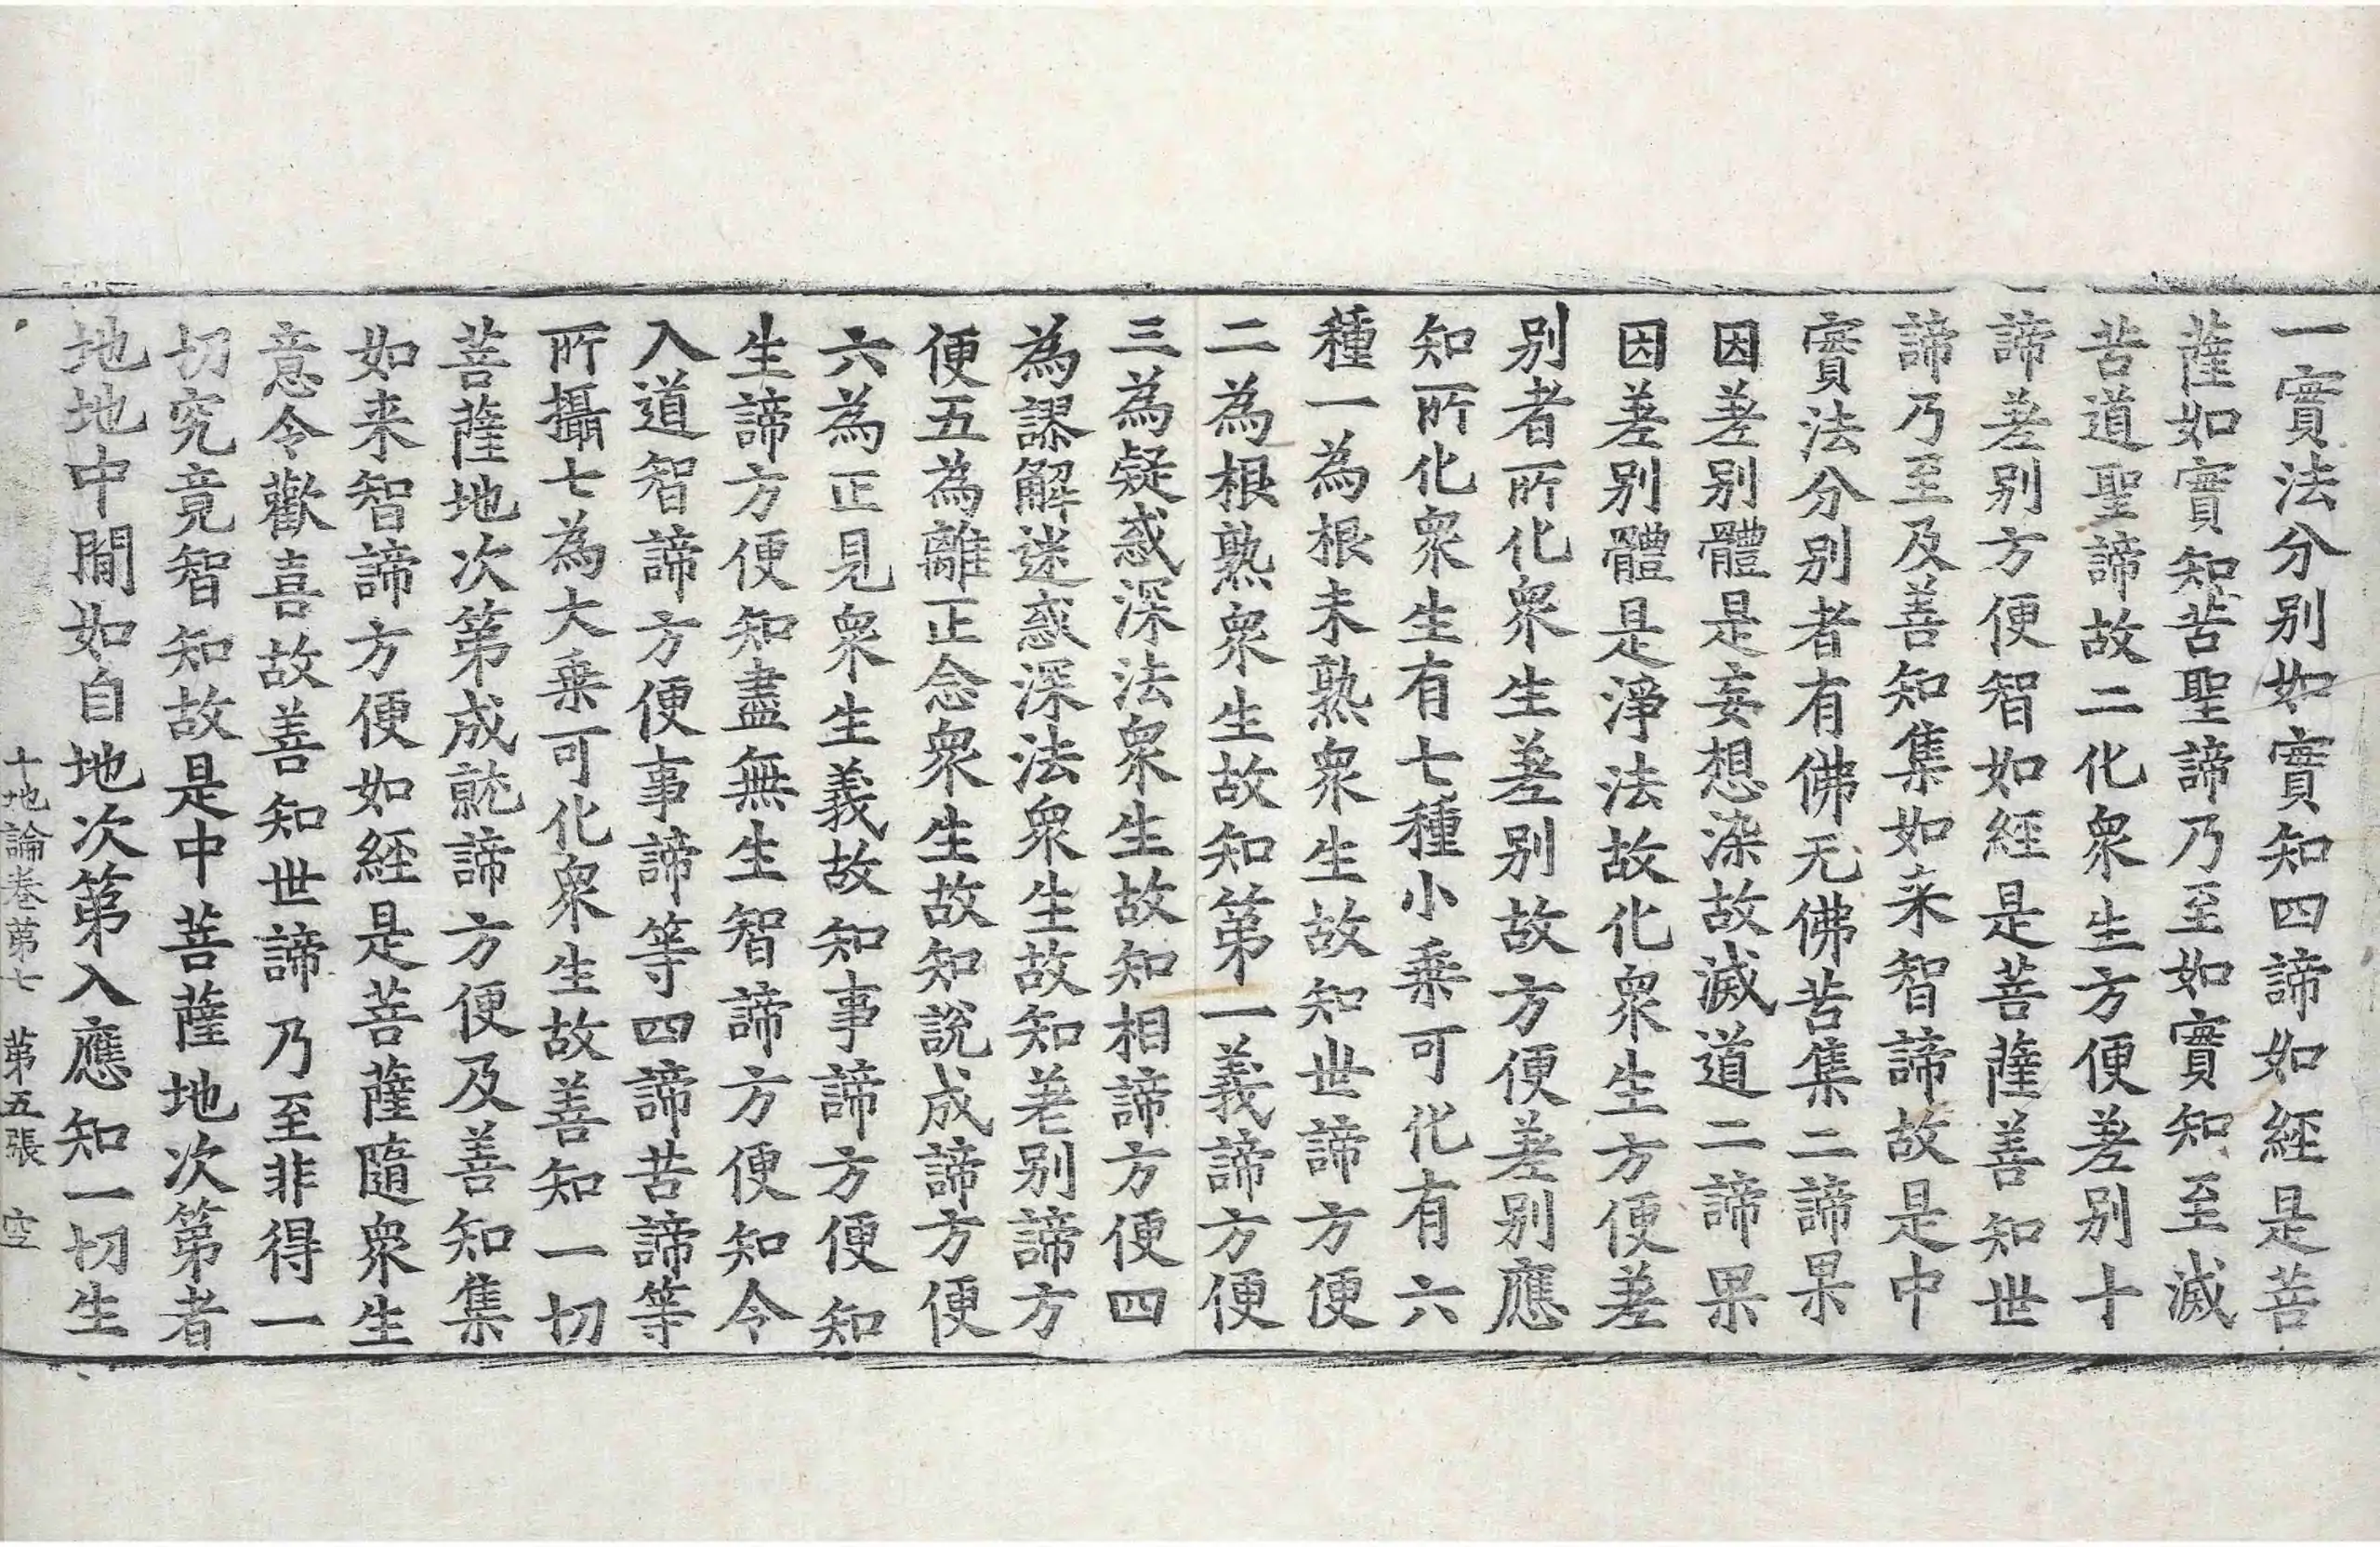 一實法分別如實知四諦如經是菩
薩如實知苦聖諦乃至如實知至滅
苦道聖諦故二化衆生方便差別十
諦差別方便智如經是菩薩善知世
諦乃至及善知集如来智諦故是中
實法分別者有佛无佛苦集二諦果
因差別體是妄想染故滅道二諦果
因差別體是淨法故化衆生方便差
別者所化衆生差別故方便差別應
知所化衆生有七種小乗可化有六
種一為根未熟衆生故知世諦方便
二為根熟衆生故知第一義諦方便
三為疑惑深法衆生故知相諦方便四
為謬解迷惑深法衆生故知差別諦方
便五為離正念衆生故知説成諦方便
六為正見衆生義故知事諦方便知
生諦方便知盡無生智諦方便知令
入道智諦方便事諦等四諦苦諦等
所攝七為大乗可化衆生故善知一切
菩薩地次第成就諦方便及善知集
如来智諦方便如經是菩薩隨衆生
意令歡喜故善知世諦乃至非得一
切究竟智知故是中菩薩地次第者
地地中間如自地次第入應知一切生
十地論卷第七 第五張 空